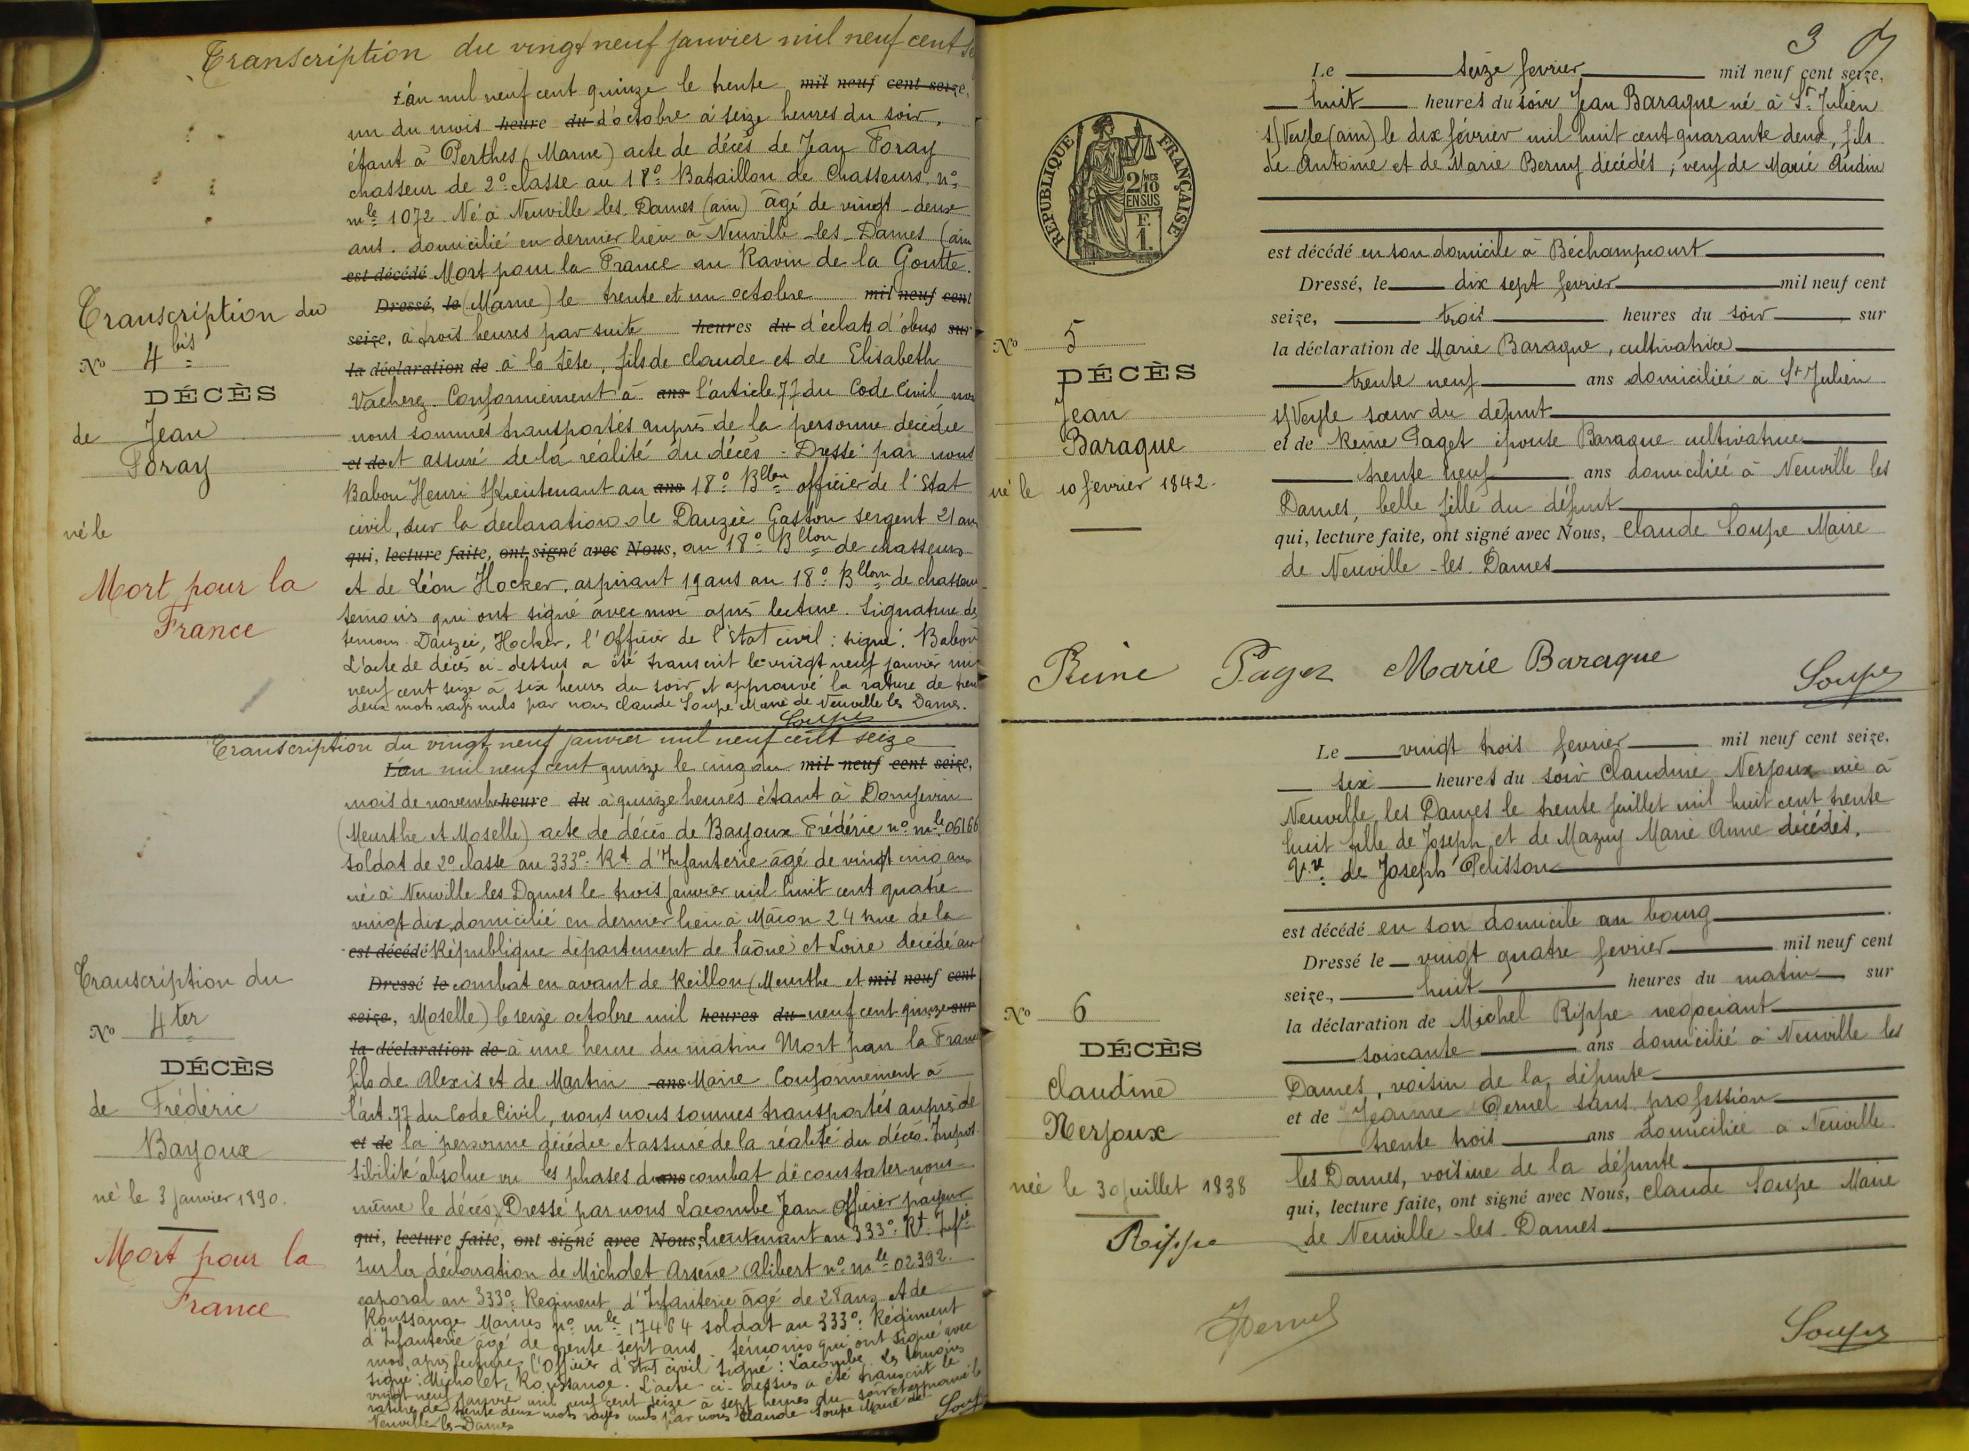 Transcription du vingt neuf janvier mil neuf cent
L'an mil neuf cent quinze le trente mil neuf cent seize,
un du mois heure du d'octobre à seize heures du soir,
étant à Perthes (Marne) acte de décès de Jean Foray
chasseur de 2e classe au 18e Bataillon de Chasseurs, no
mle 1072. Né à Neuville les Dames (ain) âgé de vingt-deux
ans. domicilié en dernier lieu à Neuville-les-Dames (ain
est décédé Mort pour la France au Ravin de la Goutte.
Dressé, le (Marne) le trente et un octobre mil neuf cent
seize, à trois heures par suite heures du d'éclats d'obus sur
la déclaration de à la tête, fils de Claude et de Elisabeth
Conformément à ans l'article 77 du Code Civil, nous
nous sommes transportés auprès de la personne décédée
et de et assuré de la réalité du décès - Dressé par nous
Babou Henri lieutenant au ans 18e Bllon officier de l'état
civil, sur la déclaration de Dauzié Gaston sergent 21 ans
qui, lecture faite, ont signé avec Nous, au 18e Bllon de chasseurs
et de Léon Hocker, aspirant 19 ans au 18e Bllon de chasseurs
témoins qui ont signé avec moi après lecture. Signature des
témoins Dauzié, Hocker, l'Officier de l'état civil : signé : Babou
L'acte de décès ci-dessus a été transcrit le vingt neuf janvier mil
neuf cent seize à six heures du soir et approuvé la rature de trente
deux mots rayés nuls par nous Claude Soupe Maire de Neuville les Dames.
Soupe
Transcription du
No 4 bis
DÉCÈS
de Jean
Foray
né le
Mort pour la
France
Transcription du vingt neuf janvier mil neuf cent seize
L'an mil neuf cent quinze le cinq du mil neuf cent seize,
mois de novembre heure du à quinze heures étant à Domjevin
(Meurthe et Moselle) acte de décès de Bayoux Frédéric no mle 06166
soldat de 2e classe au 333e Rt d'Infanterie âgé de vingt cinq ans
né à Neuville les Dames le trois janvier mil huit cent quatre
vingt dix, domicilié en dernier lieu à Mâcon 24 rue de la
est décédé République département de Saône et Loire décédé au
Dressé le combat en avant de Reillon (Meurthe et mil neuf cent
seize, Moselle) le seize octobre mil heures du neuf cent quinze sur
la déclaration de à une heure du matin Mort pour la France
fils de Alexis et de Martin ans Marie. Conformément à
l'art. 77 du Code Civil, nous nous sommes transportés auprès de
et de la personne décédée et assuré de la réalité du décès. Impos
sibilité absolue vu les phases du ans combat de constater nous-
même le décès. Dressé par nous Lacombe Jean Officier payeur
qui, lecture faite, ont signé avec Nous, lieutenant au 333e Rt Infie
sur la déclaration de Micholet Arsène Alibert no mle 02392.
caporal au 333e Régiment d'Infanterie âgé de 28 ans et de
Roussange Marius no mle 17464 soldat au 333e Régiment
d'Infanterie âgé de trente sept ans témoins qui ont signé avec
moi après lecture. l'Officier d'état civil signé : Lacombe. Les témoins
signé : Micholet, Roussange. L'acte ci-dessus a été transcrit le
vingt neuf janvier mil neuf cent seize à sept heures du soir et approuvé la
rature de trente deux mots rayés nuls par nous Claude Soupe Maire de
Neuville-les-Dames
Soupe
Transcription du
No 4 ter
DÉCÈS
de Frédéric
Bayoux
né le 3 janvier 1890.
Mort pour la
France
3
REPUBLIQUE FRANÇAISE
2/10
EN SUS
F.
1.
Le seize fevrier mil neuf cent seize,
huit heures du soir Jean Baraque né à St Julien
s/Veyle (ain) le dix février mil huit cent quarante deux, fils
de Antoine et de Marie Berny décédés ; veuf de Marie Audin
est décédé en son domicile à Béchampcourt
Dressé, le dix sept fevrier mil neuf cent
seize, trois heures du soir sur
la déclaration de Marie Baraque, cultivatrice
trente neuf ans domiciliée à St Julien
s/Veyle sœur du défunt
et de Reine Paget épouse Baraque cultivatrice
trente neuf ans domiciliée à Neuville les
Dames, belle fille du défunt
qui, lecture faite, ont signé avec Nous, Claude Soupe Maire
de Neuville-les-Dames
No 5
DÉCÈS
Jean
Baraque
né le 10 fevrier 1842.
Reine Paget Marie Baraque
Soupe
Le vingt trois fevrier mil neuf cent seize,
six heures du soir Claudine Nerjoux née à
Neuville les Dames le trente juillet mil huit cent trente
huit fille de Joseph et de Mazuy Marie Anne décédés,
Vve de Joseph Pelisson
est décédé en son domicile au bourg
Dressé le vingt quatre fevrier mil neuf cent
seize, huit heures du matin sur
la déclaration de Michel Rippe negociant
soixante ans domicilié à Neuville les
Dames, voisin de la défunte
et de Jeanne Pernel sans profession
trente trois ans domiciliée à Neuville
les Dames, voisine de la défunte
qui, lecture faite, ont signé avec Nous, Claude Soupe Maire
de Neuville-les-Dames
No 6
DÉCÈS
Claudine
Nerjoux
née le 30 juillet 1838
Rippe
JPernel
Soupe